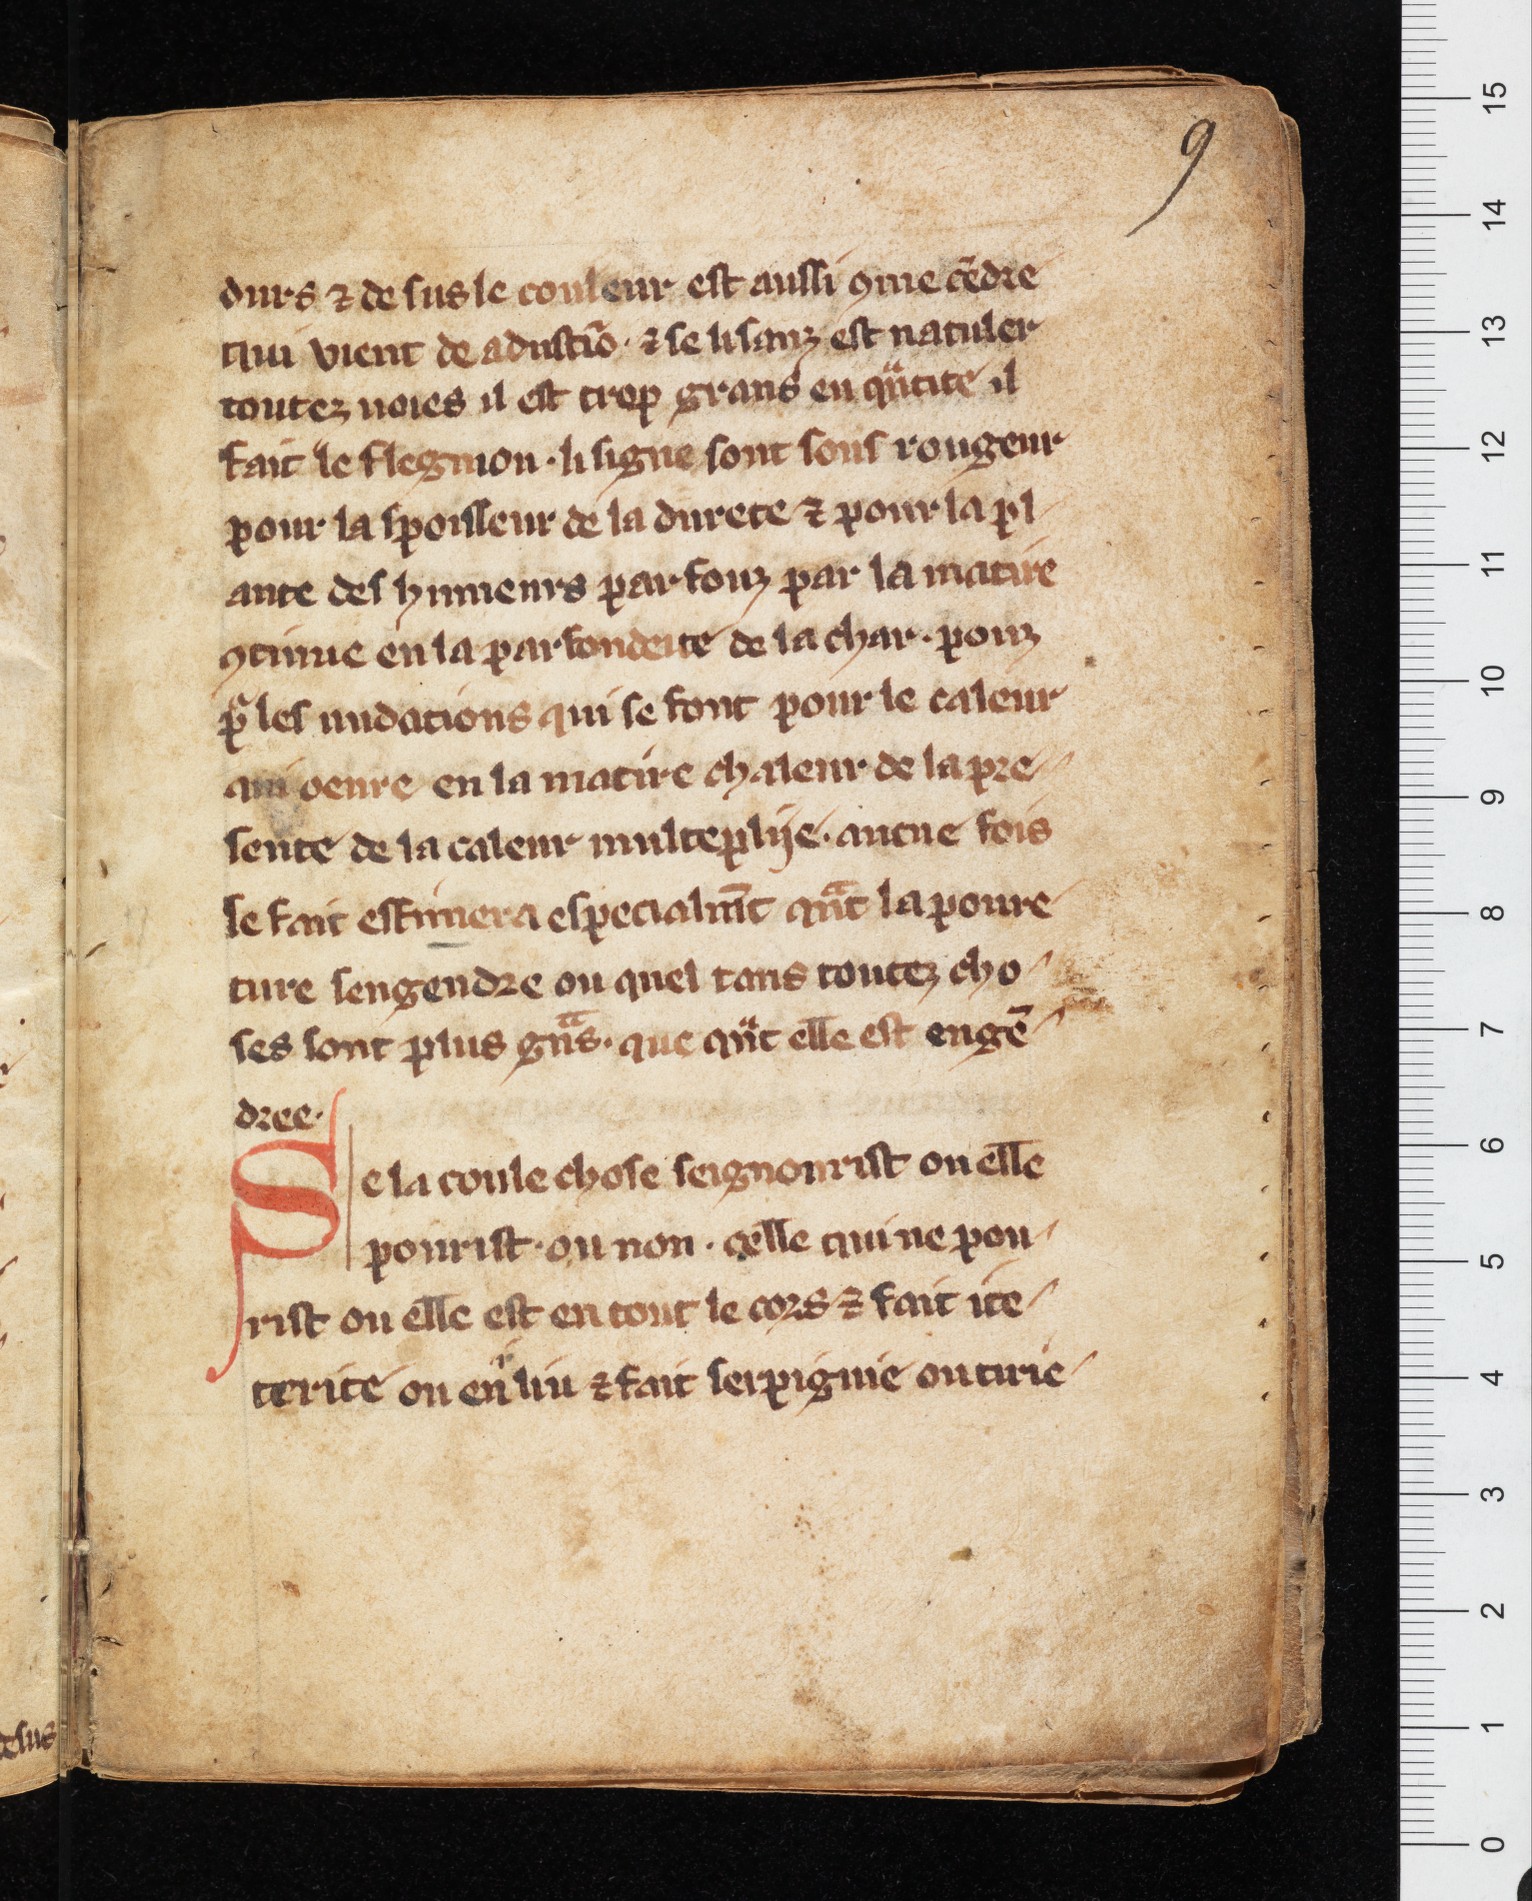 9
durs ⁊ de sus le couleur est aussi ꝯme cēdre
qui vient de adustiō · ⁊ se li sanz est natuler
toutez uoies il est trop grans en qͣntite il
fait le flegmon · li signe sont sous rougeur
pour la spoisseur de la durete ⁊ pour la pl
ante des humeurs parfonz par la matire
ꝯtinue en la parfondeite de la char · pouz
pͬ les nudations qui se font pour le caleur
qui oeure en la matire chaleur de la pre
sente de la caleur multeplije · aucūe fois
se fait esfimera especialmēt qͣnt la poure
ture sengendre ou quel tans toutez cho
ses sont plus gͣns · que qͣnt elle est engē
dree ·
Se la coule chose seignourist ou elle
pourist · ou non · celle qui ne pou
rist ou elle est en tout le cors ⁊ fait ite
terite ou en .i. liu ⁊ fait serpignie ou tirie
desus
0 1 2 3 4 5 6 7 8 9 10 11 12 13 14 15